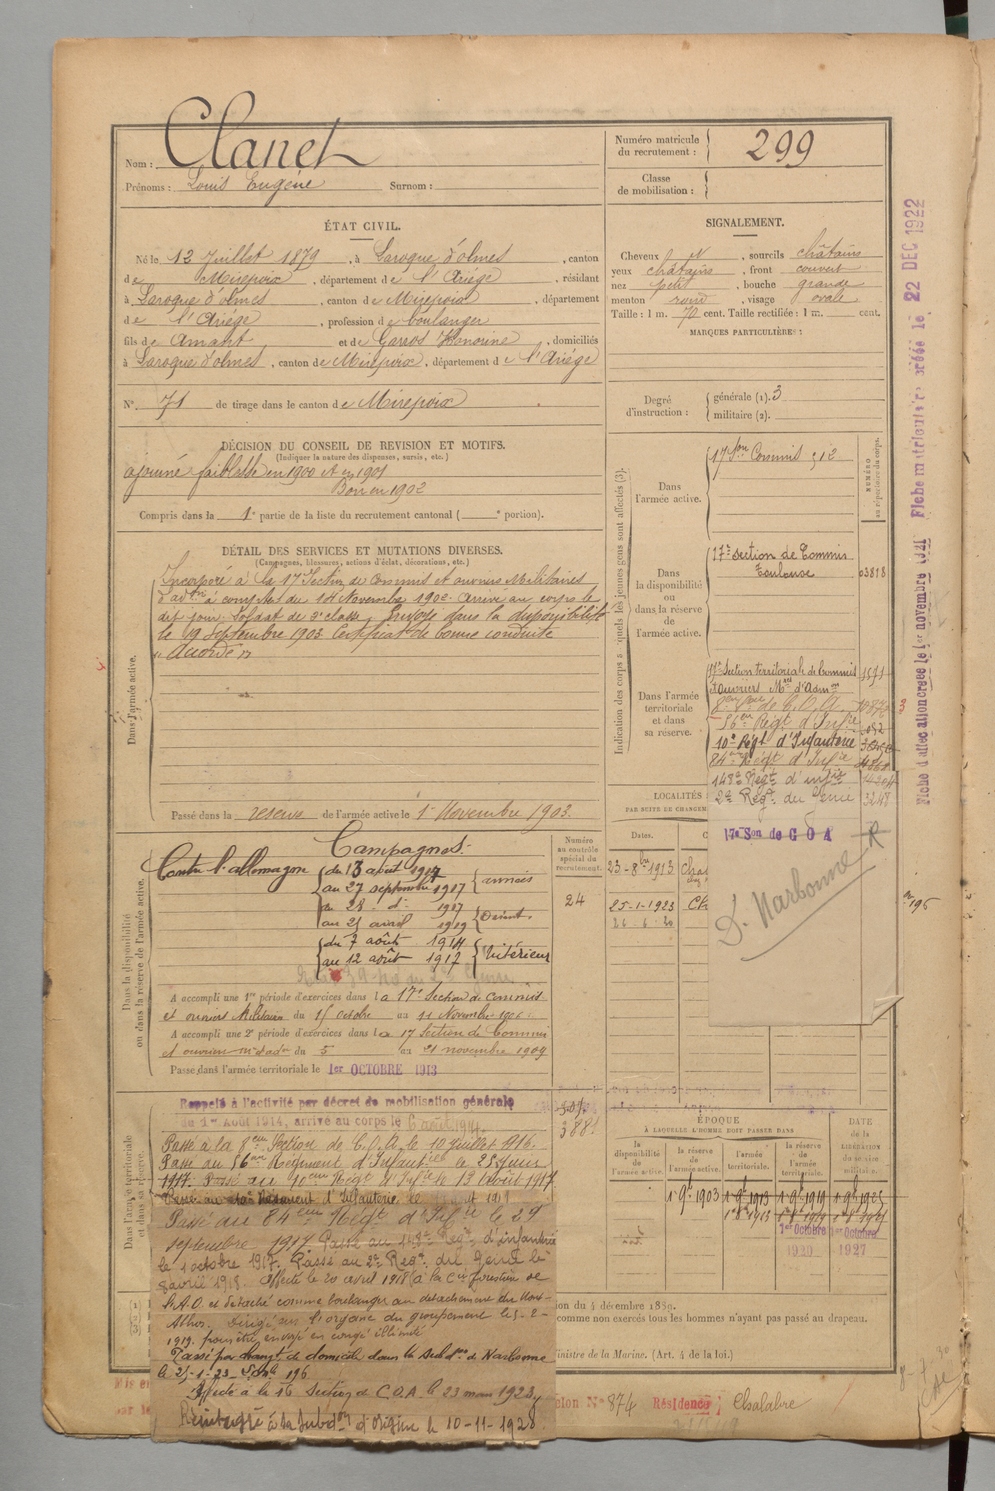 Nom : Clanet
Prénoms : Louis Eugène Surnom :
Numéro matricule du recrutement : 299
Classe de mobilisation :
ÉTAT CIVIL.
Né le 12 Juillet 1879, à Laroque d'olmes, canton
de Mirepoix, département de l'Ariège, résidant
à Laroque d'olmes, canton de Mirepoix, département
de l'Ariége, profession de boulanger
fils de Amant et de Garros Honorine, domiciliés
à Laroque d'olmes, canton de Mirepoix, département de l'Ariége
N° 71 de tirage dans le canton de Mirepoix
SIGNALEMENT.
Cheveux N, sourcils châtains
yeux châtains, front couvert
nez petit, bouche grande
menton rond, visage ovale
Taille : 1 m. 70 cent. Taille rectifiée : 1 m. cent.
MARQUES PARTICULIÈRES :
Degré d'instruction : générale (1). 3
militaire (2).
DÉCISION DU CONSEIL DE REVISION ET MOTIFS.
(Indiquer la nature des dispenses, sursis, etc.)
ajourné faiblesse en 1900 et en 1901
Bon en 1902
Compris dans la 1e partie de la liste du recrutement cantonal ( e portion).
DÉTAIL DES SERVICES ET MUTATIONS DIVERSES.
(Campagnes, blessures, actions d'éclat, décorations, etc.)
Dans l'armée active.
Incorporé à la 17 Section de Commis et ouvriers Militaires
d'adon à compter du 14 Novembre 1902 arrivé au corps le
dit jour Soldat de 2e classe Envoyé dans la disponibilité
le 19 Septembre 1903 Certificat de bonne conduite
"Accordé"
Passé dans la réserve de l'armée active le 1er Novembre 1903.
Indication des corps auxquels les jeunes gens sont affectés (3).
NUMÉRO au répertoire du corps.
Dans l'armée active.
17 Son Commis
Dans la disponibilité ou dans la réserve de l'armée active.
17e section de Commis
Toulouse 03818
Dans l'armée territoriale et dans sa réserve.
17e Section territoriale de Commis
8eme de C.O.A.
56eme Regt d'Infie
10e Régt d'Infanterie
84eme Régt d'Infie
148e Regt d'infie
2e Regt du Génie 3248
17e Son de COA
D. Narbonne R
LOCALITÉS
PAR SUITE DE CHANGEM
Dates.
23-8bre 1913
25-1-1923 Ch
26-6-20
Dans la disponibilité ou dans la réserve de l'armée active.
Campagnes.
Contre l'allemagne
du 13 août 1917
au 27 septembre 1917 armées
du 28 d° 1917
au 21 avril 1919 Orient
du 7 août 1914
au 12 août 1917 Intérieur
Numéro au contrôle spécial du recrutement.
24
A accompli une 1re période d'exercices dans la 17e Section de Commis
et ouvriers Militaires du 15 octobre au 11 Novembre
A accompli une 2e période d'exercices dans la 17 Section de Commis
et ouvriers du 5 au 21 novembre 1909
Passé dans l'armée territoriale le 1er OCTOBRE 1913
Dans l'armée territoriale et dans sa réserve.
Rappelé à l'activité par décret de mobilisation générale
du 1er Août 1914, arrivé au corps le 6 août 1914
Passé à la 8eme Section de C.O.A. le 10 juillet 1916.
Passé au 56eme Regiment d'Infanterie le 25 Juin
1917. Passé au 10eme Regt d'Infie le 13 août 1917
Passé au 84eme Regt d'Infie le 29
septembre 1917 Passé au 148e Regt d'infanterie
le 1 octobre 1917. Passé au 2e Regt du Génie le
8 avril 1918. Affecté le 20 avril 1918 à la Cie forestière de
l'A.O. et détaché comme boulanger au detachement du Mont-
Athos. Dirigé sur l'organe du groupement le 5-2-
1919. pour être envoyé en congé illimité
Passé par changt de domicile dans la subdon de Narbonne
le 25-1-23 196
Affecté à la 16 Section de C.O.A. le 23 mars 1923
Réintegré à la Subdon d'origine le 10-11-1928
ÉPOQUE
À LAQUELLE L'HOMME DOIT PASSER DANS
la disponibilité de l'armée active.
la réserve de l'armée active.
l'armée territoriale.
la réserve de l'armée territoriale.
DATE de la LIBÉRATION du service militaire.
1er 9bre 1903 1er 9bre 1913 1er 9bre 1919 1er 9bre 1925
1er 8bre 1913 1er 8bre 1919 1er 8bre 1925
1er Octobre 1er Octobre
1920 1927
ion du 4 décembre 1889.
comme non exercés tous les hommes n'ayant pas passé au drapeau.
inistre de la Marine. (Art. 4 de la loi.)
Mis en
N° 874 Résidence : Chalabre
Fiche d'affectation créée le 1er novembre 1921
Fiche matriculaire créée le 22 DEC 1922